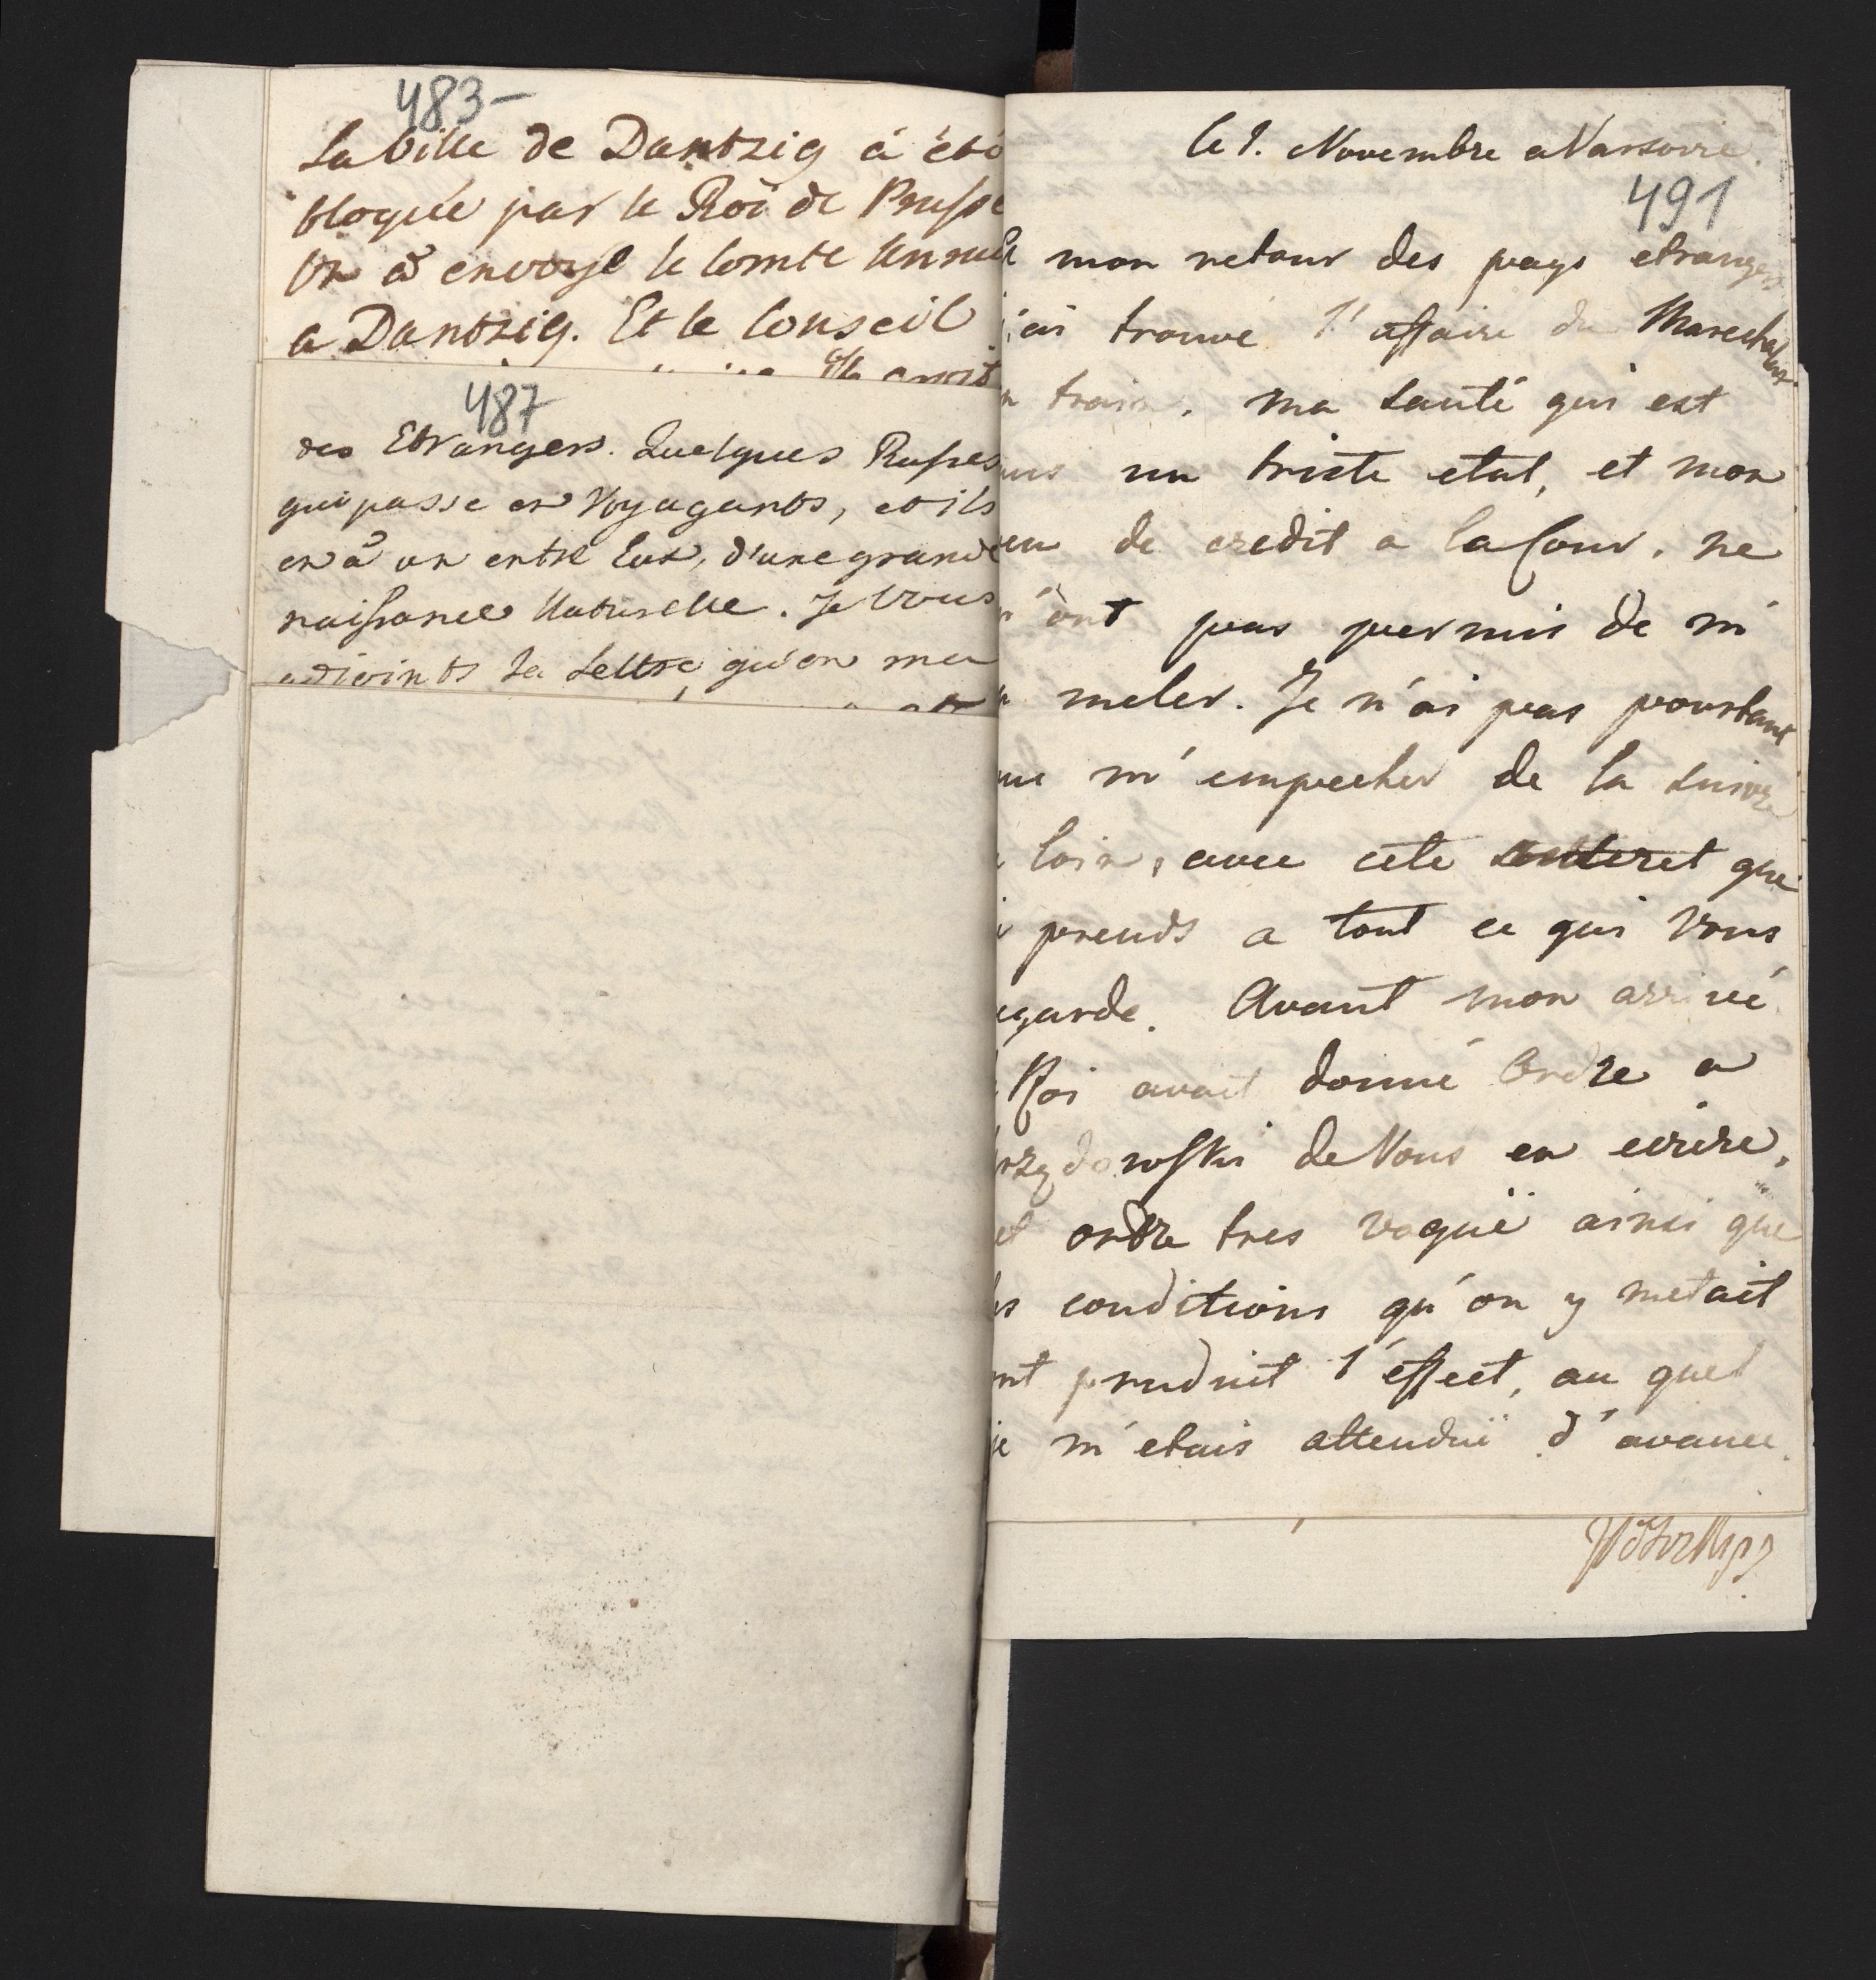 483-
La Ville de Dantzig á été
bloquée par le Roi de Prusse
On á envoyé le Comte Unru
a Dantzig. Et le Conseil
487
des Etrangers. Quelques Russes
qui passe en Voyagants, et ils
en á un entre Eux, d'une grande
naissance Naturelle. Je Vous
adjoints la Lettre qu'on ma
le 1. Novembre a Varsovie.
491
A mon retour des pays etrangers
j'ai trouvé l'affaire du Marechal
n train. ma santé qui est
ns un triste etat, et mon
eu de credit a la Cour. ne
m'ont pas permis de m'
n meler. Je n'ai pas pourtant
pu m'empecher de la suivre
e loin, avec cete interet que
j prends a tout ce qui Vous
egarde. Avant mon arrivé
Roi avait donné Ordre a
rzydowski de Vous en ecrire,
et ordre tres vaguë ainsi que
es conditions qu'on y metait
ont produit l'effect, au quel
je m'etais attenduë d'avance.